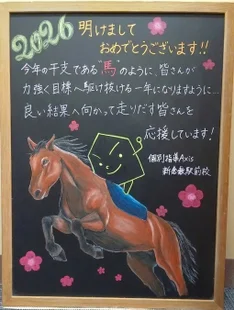 2026 明けまして
おめでとうございます!!
今年の干支である"馬"のように、皆さんが
力強く目標へ駆け抜ける一年になりますように…
良い結果へ向かって走りだす皆さんを
応援しています!
個別指導Axis
新倉敷駅前校